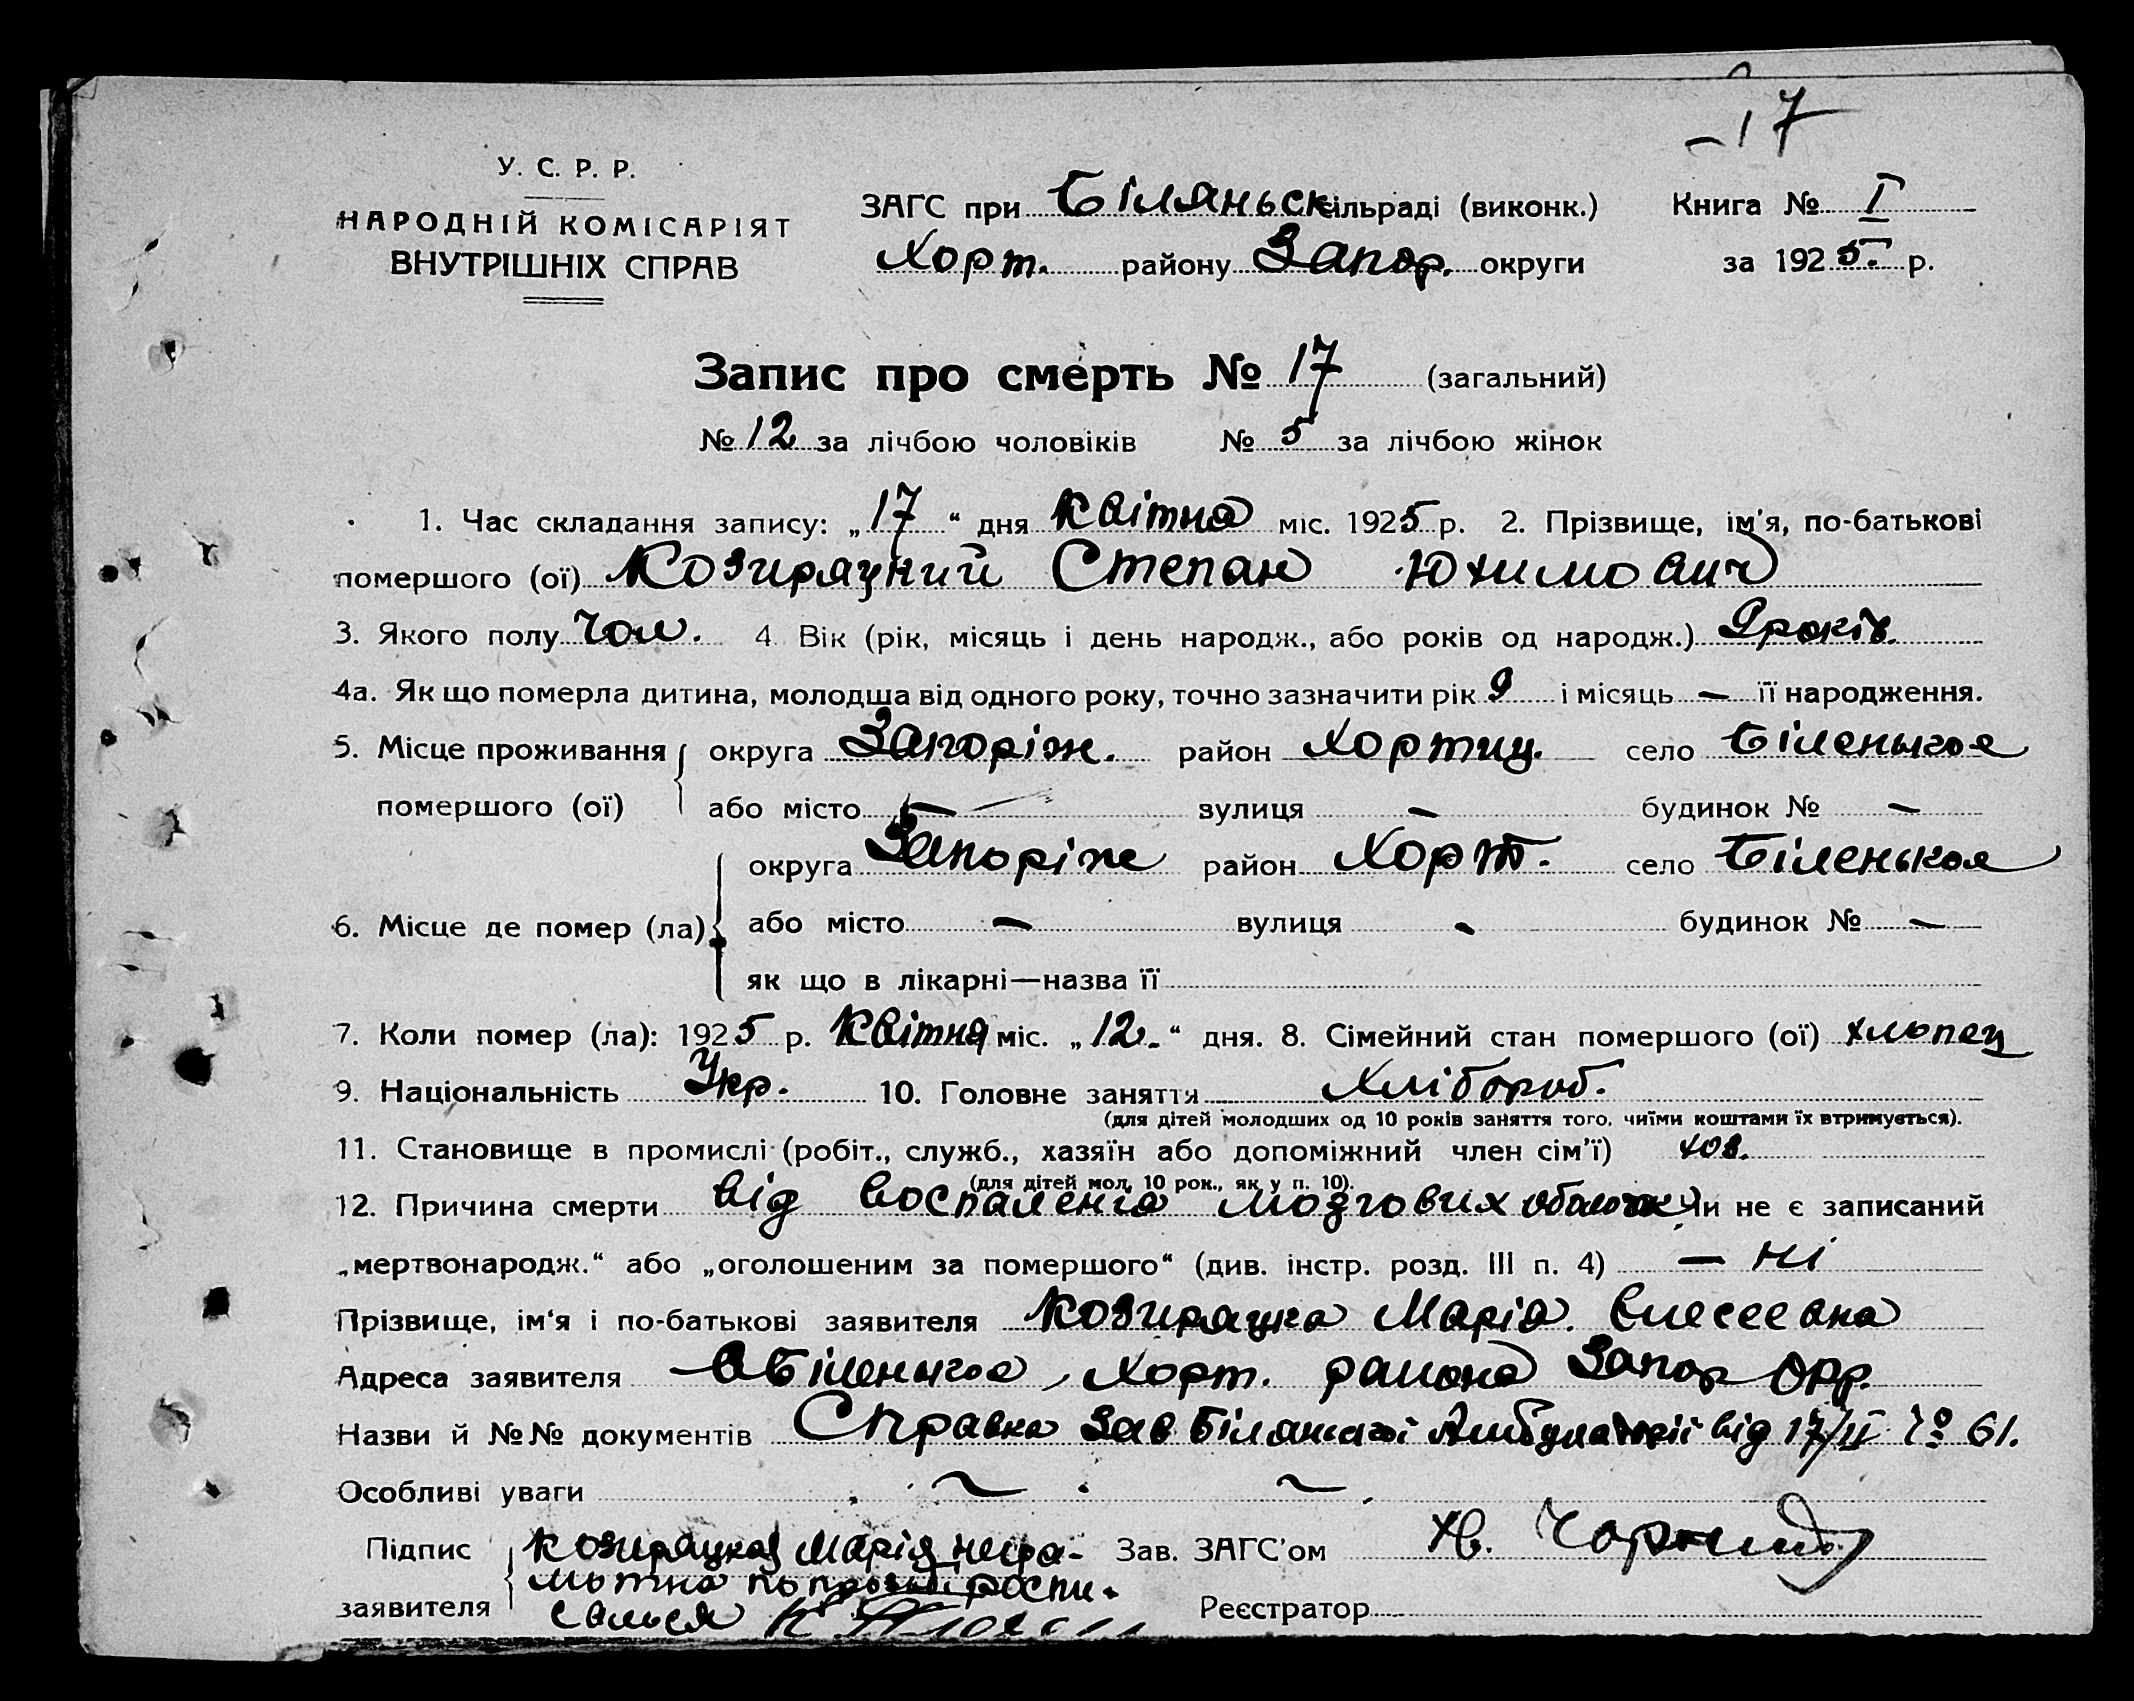 –17
У. С. Р. Р.
НАРОДНІЙ КОМІСАРІЯТ
ВНУТРІШНІХ СПРАВ
ЗАГС при Біляньск сільраді (виконк.) Книга № I
Хорт. району Запор. округи за 1925 р.
Запис про смерть № 17 (загальний)
№ 12 за лічбою чоловіків № 5 за лічбою жінок
1. Час складання запису: „17“ дня Квітня міс. 1925 р. 2. Прізвище, ім'я, по-батькові
помершого (ої) Козиряцкий Степан Юхимович
3. Якого полу Чол. 4. Вік (рік, місяць і день народж., або років од народж.) 9 років.
4а. Як що померла дитина, молодша від одного року, точно зазначити рік 9 і місяць — її народження.
5. Місце проживання округа Запоріж. район Хортиц. село Біленькоя
помершого (ої) або місто — вулиця — будинок № —
округа Запоріже район Хорт. село Біленькоя
6. Місце де помер (ла) або місто — вулиця - будинок № —
як що в лікарні—назва її
7. Коли помер (ла): 1925 р. Квітня міс. „12.“ дня. 8. Сімейний стан помершого (ої) хлопец
9. Національність Укр. 10. Головне заняття Хлібороб.
(для дітей молодших од 10 років заняття того, чиїми коштами їх втримується).
11. Становище в промислі (робіт., служб., хазяїн або допоміжний член сім'ї) хоз.
(для дітей мол. 10 рок., як у п. 10).
12. Причина смерти від воспаленія мозгових оболочк Чи не є записаний
„мертвонародж.“ або „оголошеним за помершого“ (див. інстр. розд. III п. 4) — Ні
Прізвище, ім'я і по-батькові заявителя Козиряцка Марія
Адреса заявителя Біленькоя, Хорт. района Запор Окр.
Назви й №№ документів Справка Зав Амбулаторії від 17/IV № 61.
Особливі уваги ~ ~
Підпис Козиряцкая Марія негра-
заявителя мотна по прозьбі роспи-
сался
Зав. ЗАГС'ом
Реєстратор